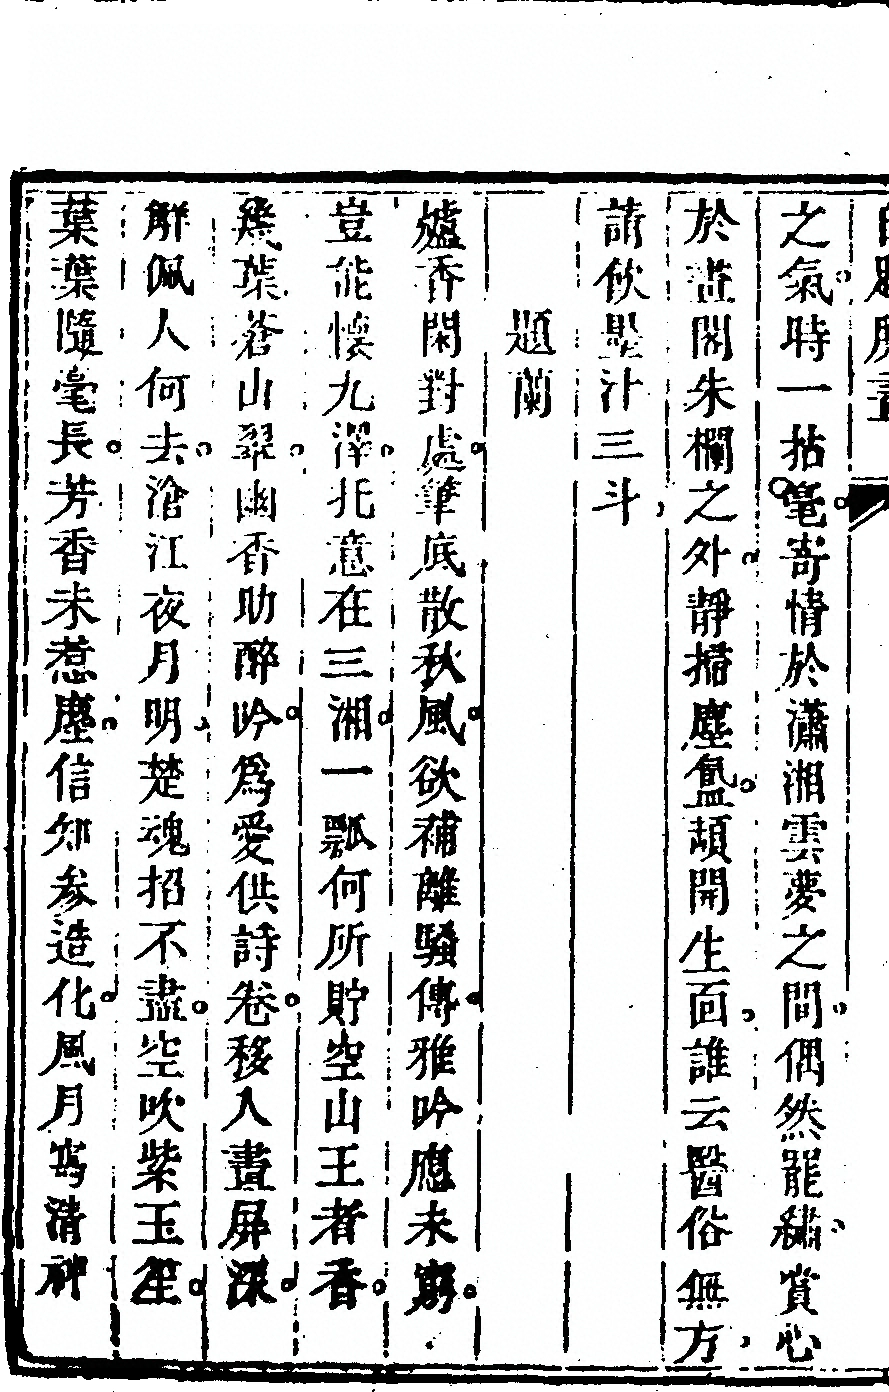 之氣時一拈毫寄情於瀟湘雲夢之間偶然罷繡賞心
於畫閣朱欄之外靜掃塵氳頡開生面誰云醫俗無方
請飲墨汁三斗
題蘭
爐香閑對處筆底散秋風欲補離騷傳雅吟應未窮
豈能懷九澤托意在三湘一瓢何所貯空山王者香
幾葉蒼山翠幽香助醉吟爲愛供詩卷移入畫屏深
解佩人何去滄江夜月明楚魂招不盡空吹紫玉笙
葉葉隨毫長芳香未惹塵信知參造化風月寫清神